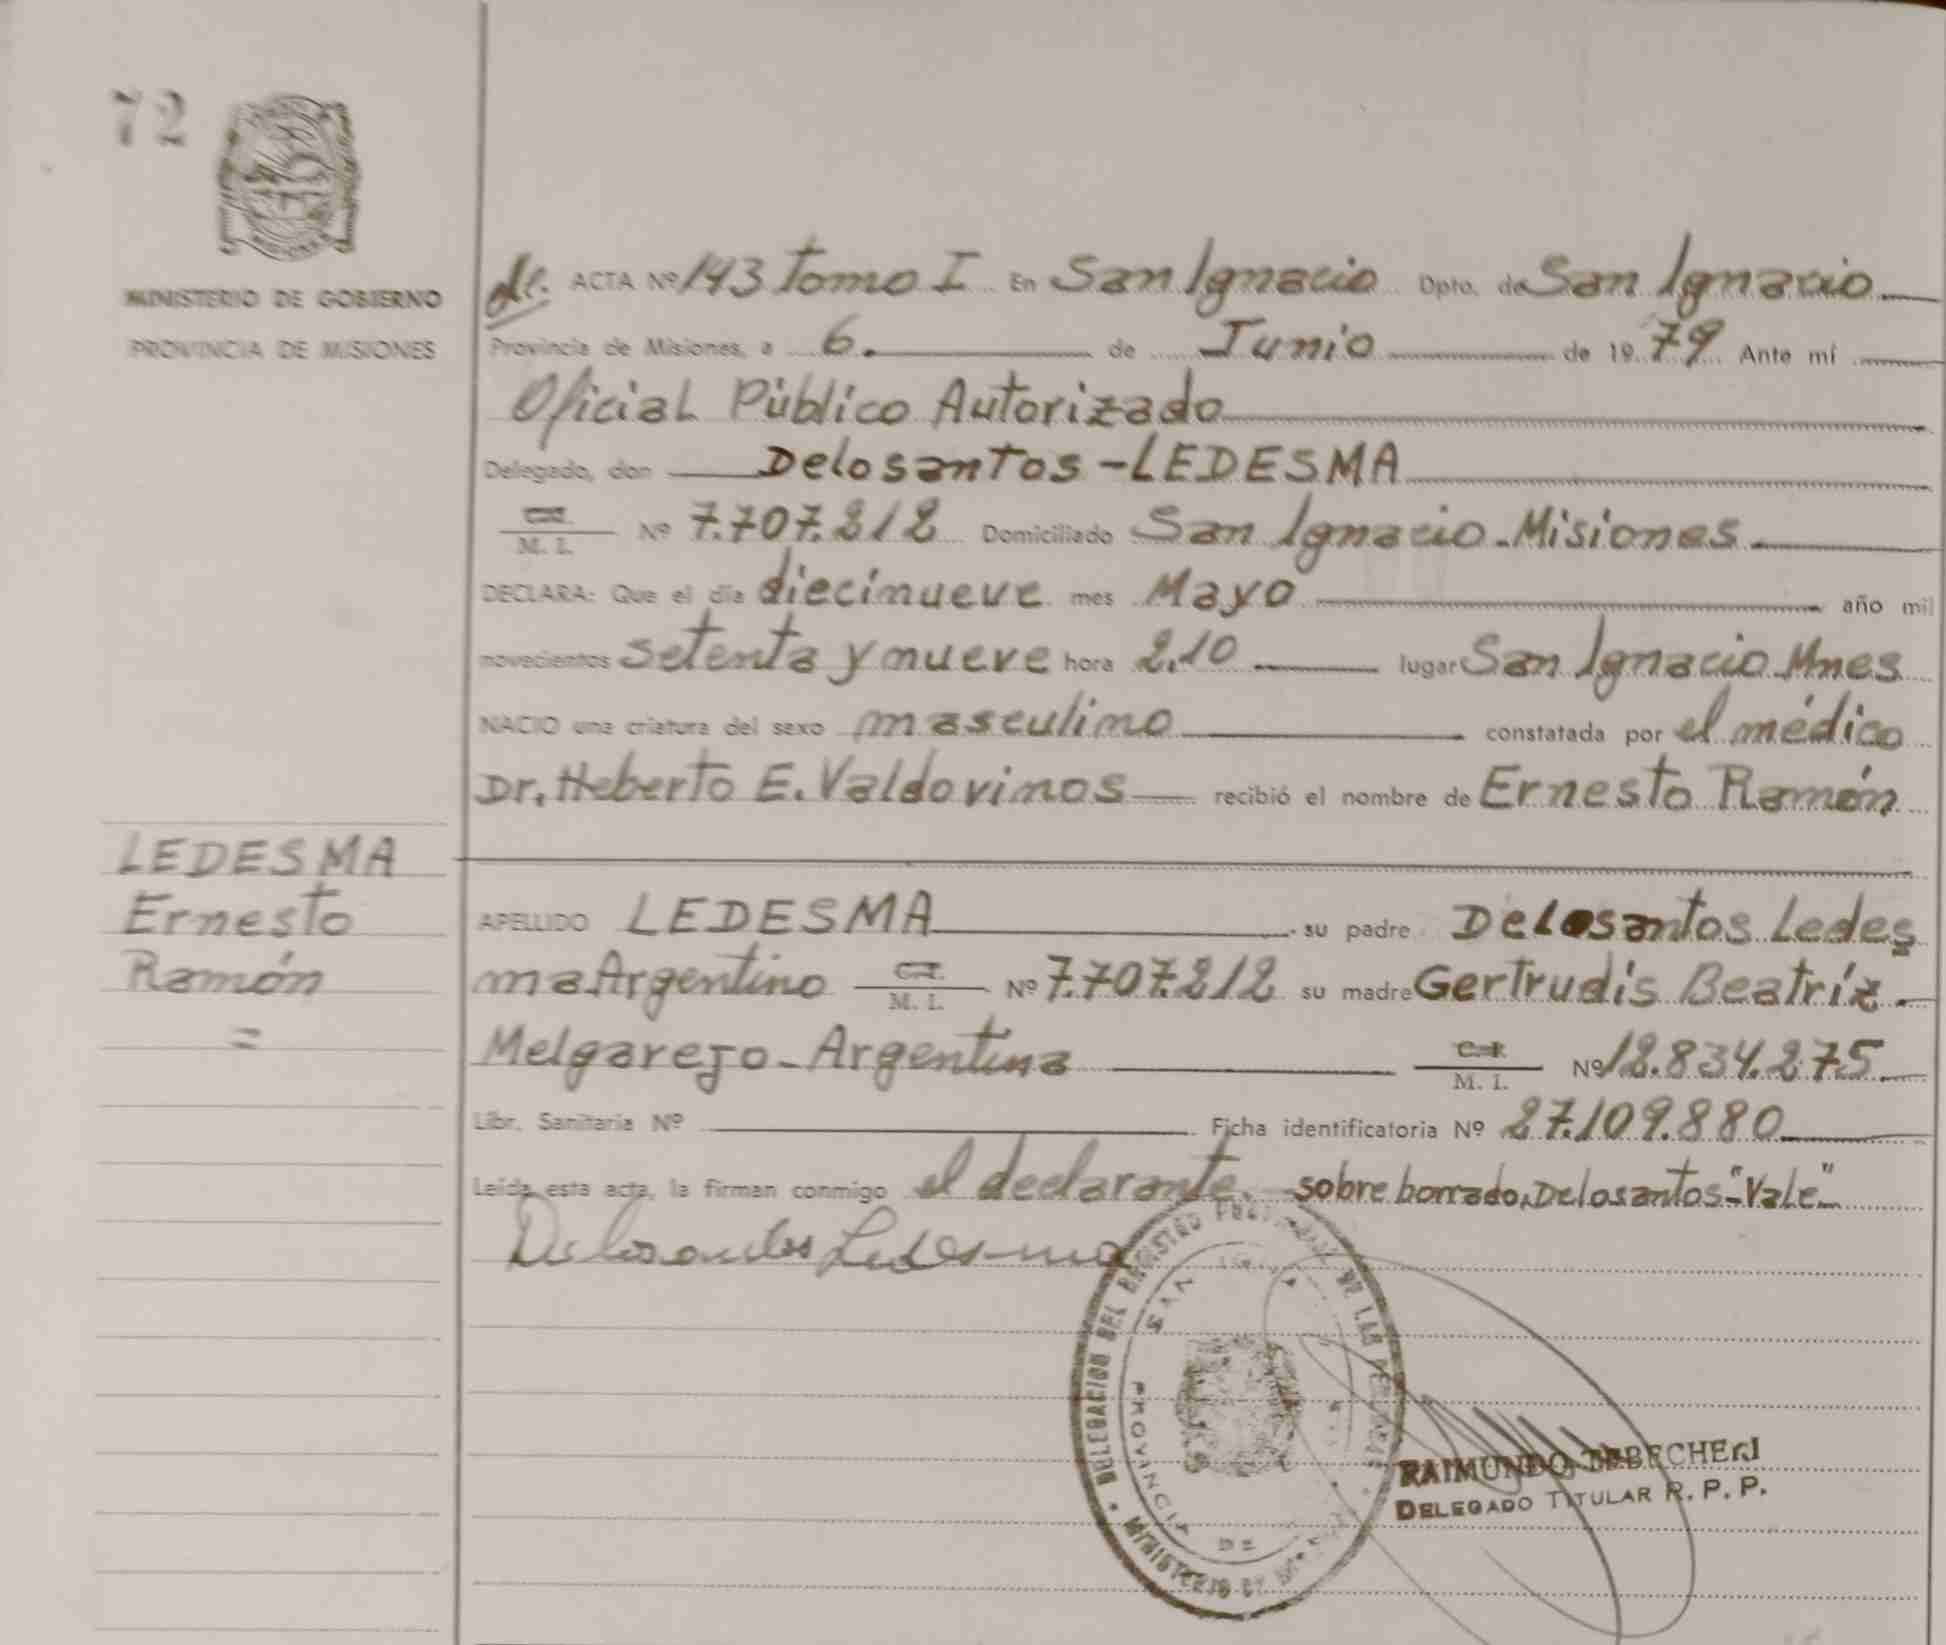 72
MINISTERIO DE GOBIERNO
PROVINCIA DE MISIONES
ACTA Nº 143 Tomo I En San Ignacio Dpto. de San Ignacio
Provincia de Misiones, a 6. de Junio de 1979 Ante mí
Oficial Público Autorizado
Delegado, don Delosantos - LEDESMA
C.I. M. I. Nº 7.707.212 Domiciliado San Ignacio - Misiones
DECLARA: Que el día diecinueve mes Mayo año mil
novecientos setenta y nueve hora 2.10 lugar San Ignacio Mnes
NACIO una criatura del sexo masculino constatada por el médico
Dr. Heberto E. Valdovinos recibió el nombre de Ernesto Ramón
LEDESMA
Ernesto
Ramón
=
APELLIDO LEDESMA su padre Delosantos Ledes
ma Argentino C.I. M. I. Nº 7.707.212 su madre Gertrudis Beatríz
Melgarejo - Argentina C.I. M. I. Nº 12.834.275
Libr. Sanitaria Nº Ficha identificatoria Nº 27.109.880
Leída esta acta, la firman conmigo el declarante. sobre borrado, Delosantos "Vale"
Delosantos Ledesma
DELEGACION DEL REGISTRO DE LAS
SAN
PROVINCIA DE
MINISTERIO DE
RAIMUNDO
DELEGADO TITULAR R. P. P.